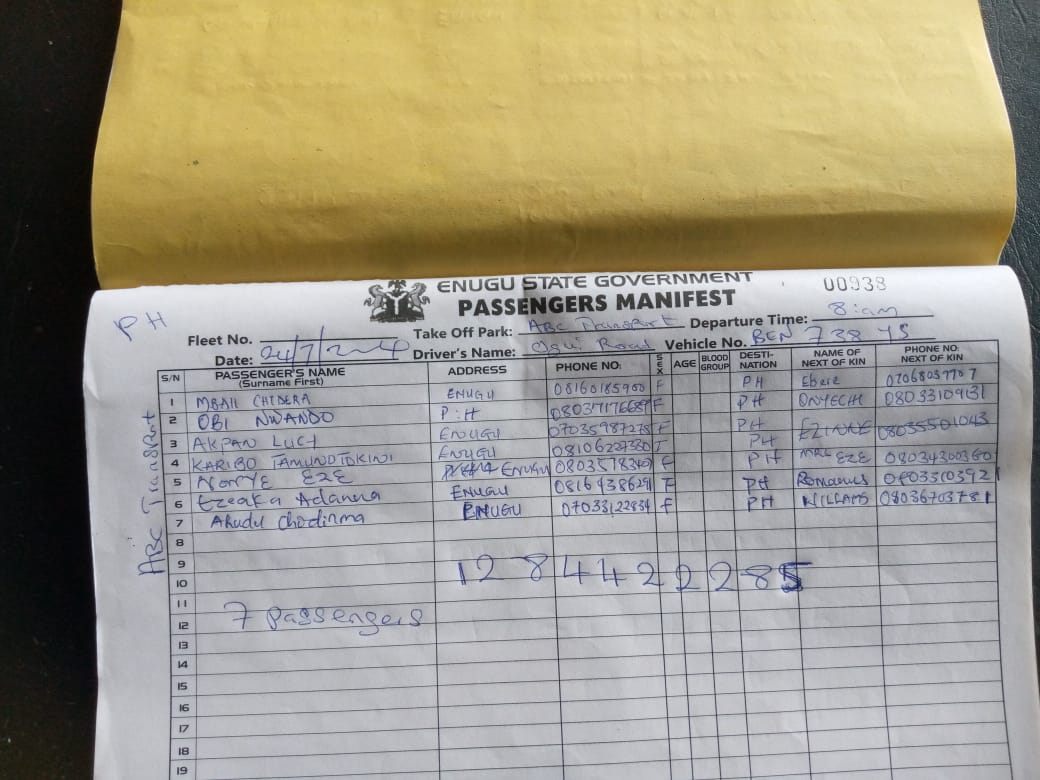 ENUGU STATE GOVERNMENT
PASSENGERS MANIFEST
00938
PH
Fleet No.
Take Off Park: ABC Transport
Departure Time: 8:am
Date: 24/7/2024
Driver's Name: Ogui Road
Vehicle No. BEN 738 YS
S/N PASSENGER'S NAME (Surname First) ADDRESS PHONE NO: SEX AGE BLOOD GROUP DESTI-NATION NAME OF NEXT OF KIN PHONE NO. NEXT OF KIN
1 MBAH CHIDERA ENUGU 08160185900 F PH Ebere 07068037707
2 OBI NWANDO P:H F PH ONYECHI 08033109131
3 AKPAN LUCY ENUGU 07035987275 F PH EZINNE 08035501043
4 KARIBO TAMUNOTOKINI ENUGU PH EZE 08034300360
5 EZE ENUGU F PH Romanus
6 Ezeaka Adanna ENUGU PH WILLIAMS 08036703781
7 Akudu Chodinma ENUGU 07033122834 F
8
9
10
1284422285
11
12 7 Passengers
13
14
15
16
17
18
19
ABC Transport